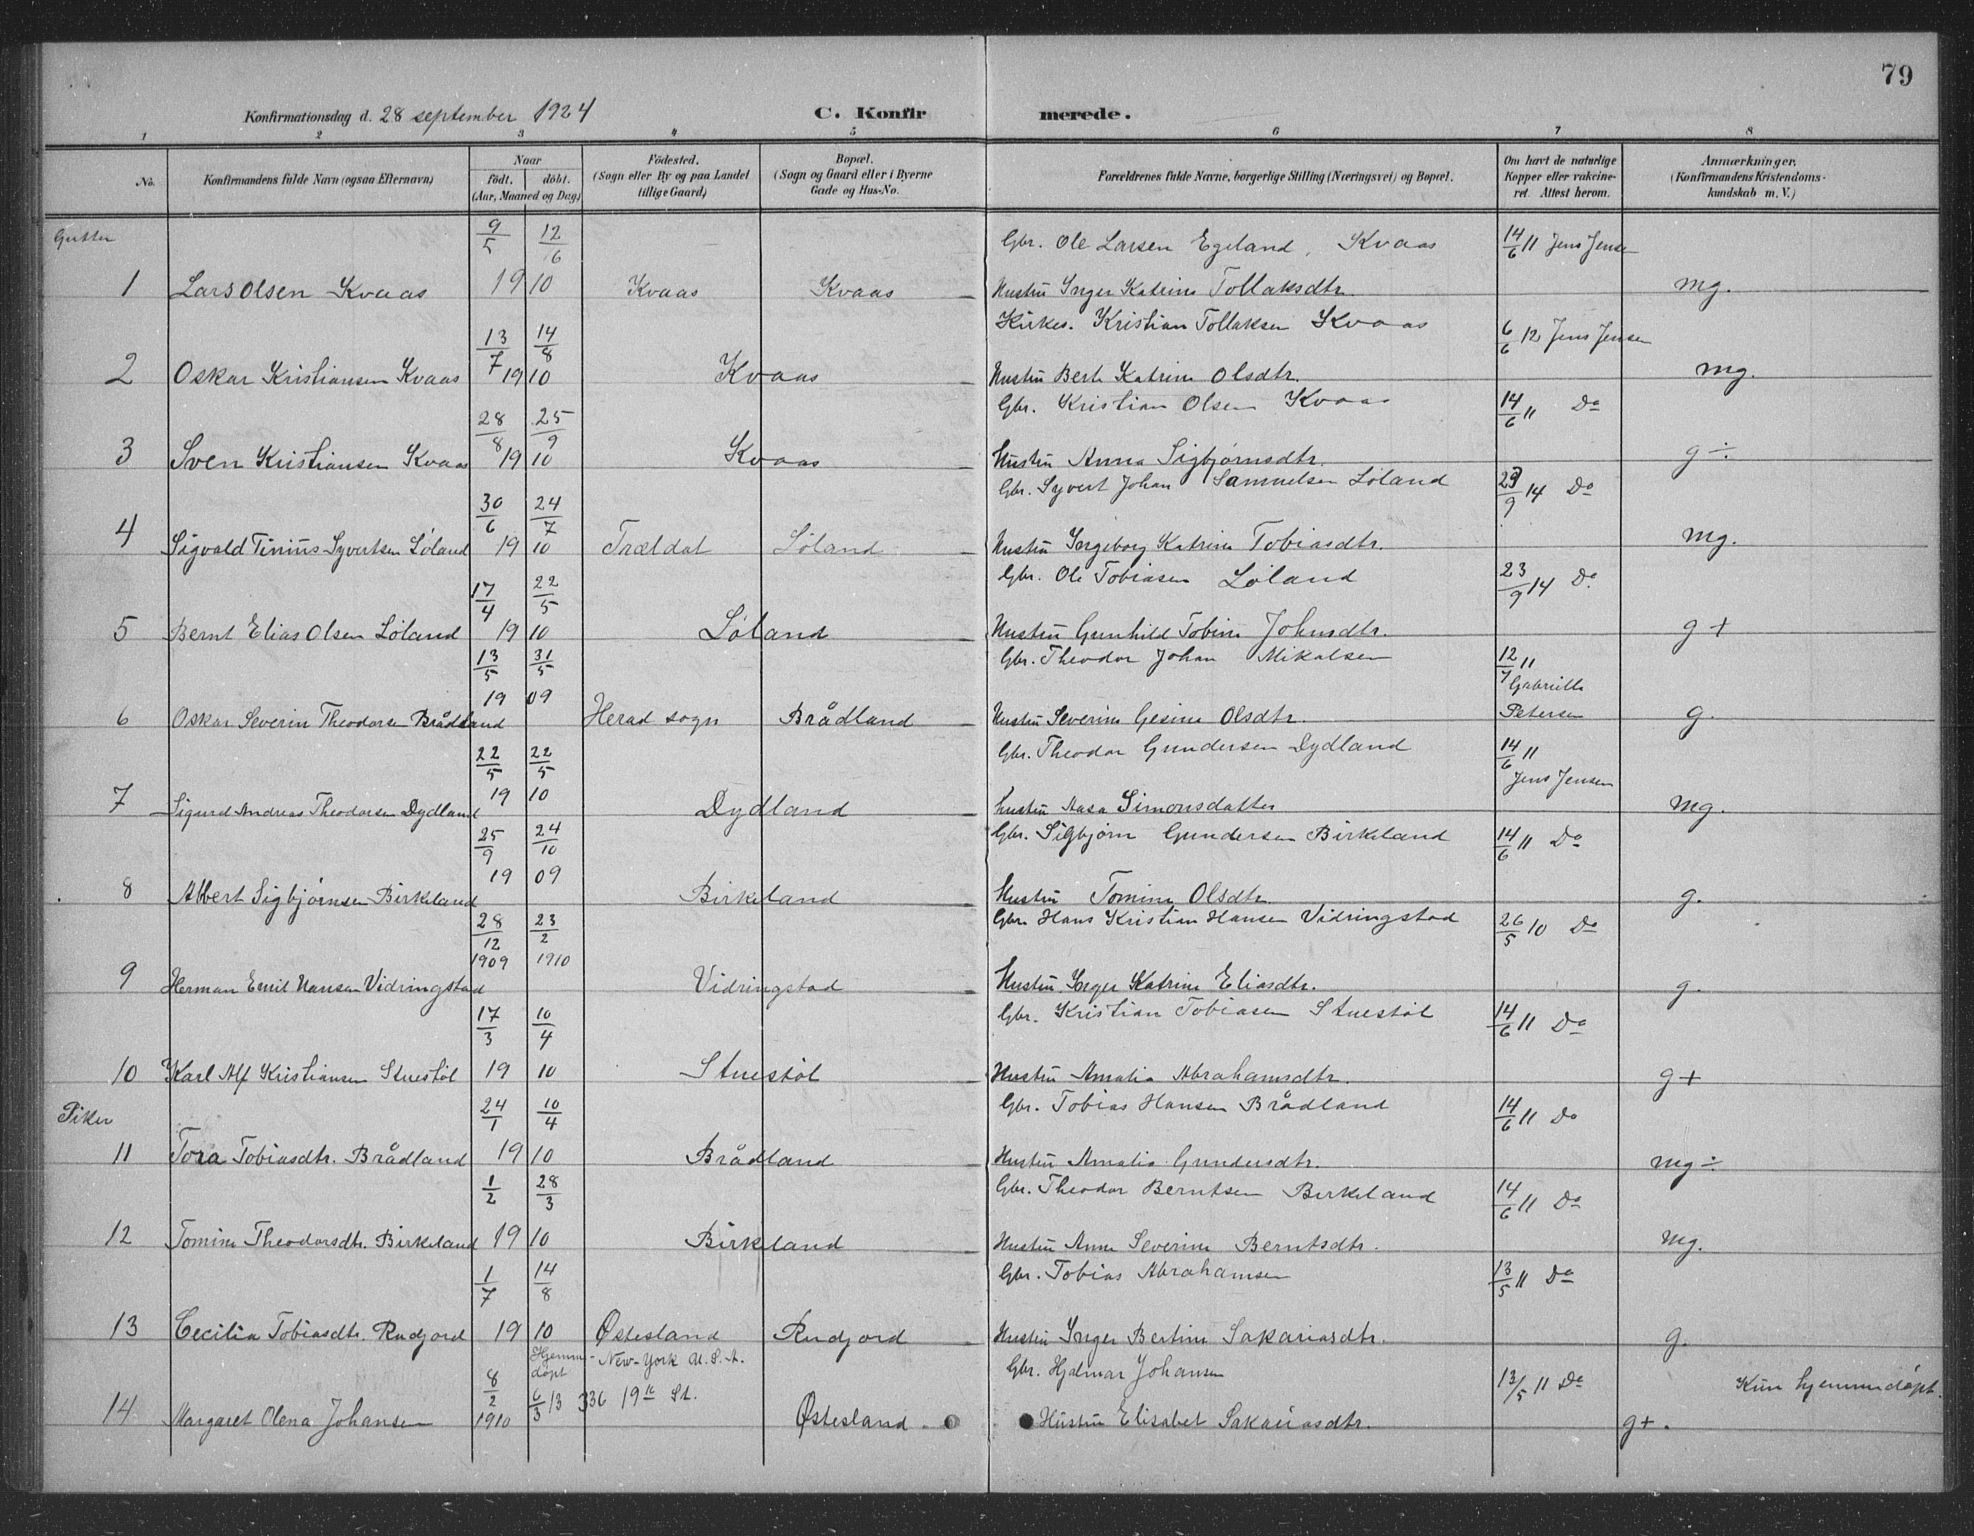 79
Konfirmationsdag d. 28 september 1924
C. Konfirmerede.
1 2 3 4 5 6 7 8
No.
Konfirmandens fulde Navn (ogsaa Efternavn)
Naar
født. døbt.
(Aar, Maaned og Dag)
Födested.
(Sogn eller By og paa Landet
tillige Gaard)
Bopæl.
(Sogn og Gaard eller i Byerne
Gade og Hus-No.
Forældrenes fulde Navne, borgerlige Stilling (Næringsvei) og Bopæl.
Om havt de naturlige
Kopper eller vakcine-
ret. Attest herom.
Anmærkninger.
(Konfirmandens Kristendoms-
kundskab m. V.)
Gutter
9/5 12/6 Gbr. Ole Larsen Egeland, Kvaas 14/6 11 Jens Jensen
1 Lars Olsen Kvaas 19 10 Kvaas Kvaas Hustru Inger Katrine Tollaksdtr. mg.
13/7 14/8 Kirkes. Kristian Tollaksen Kvaas 6/6 12 Jens Jensen
2 Oskar Kristiansen Kvaas 19 10 Kvaas Hustru Berte Katrine Olsdtr. mg.
28/8 25/9 Gbr. Kristian Olsen Kvaas 14/6 11 Do
3 Sven Kristiansen Kvaas 19 10 Kvaas Hustru Anna Sigbjørnsdtr. g÷
30/6 24/7 Gbr. Syvert Johan Samuelsen Løland 23/9 14 Do
4 Sigvald Tinius Syvertsen Løland 19 10 Trældal Løland Hustru Ingeborg Katrine Tobiasdtr. mg.
17/4 22/5 Gbr. Ole Tobiasen Løland 23/9 14 Do
5 Bernt Elias Olsen Løland 19 10 Løland Hustru Gunhild Tobine Johnsdtr. g+
13/5 31/5 Gbr. Theodor Johan Mikalsen 12/7 11
Gabrielle
19 09
6 Oskar Severin Theodorsen Brådland Herad sogn Brådland Hustru Severine Gesine Olsdtr. Petersen g.
22/5 22/5 Gbr. Theodor Gundersen Dydland 14/6 11
Jens Jensen
7 Sigurd Andreas Theodorsen Dydland 19 10 Dydland hustru Aasa Simonsdatter mg.
25/9 24/10 Gbr. Sigbjørn Gundersen Birkeland 14/6 11 Do
19 09
8 Albert Sigbjørnsen Birkeland Birkeland Hustru Tomine Olsdtr. g.
28/12 23/2 Gbr. Hans Kristian Hansen Vidringstad 26/5 10 Do
1909 1910
9 Herman Emil Hansen Vidringstad Vidringstad Hustru Inger Katrine Eliasdtr. g.
17/3 10/4 Gbr. Kristian Tobiasen Stuestøl 14/6 11 Do
10 Karl Alf Kristiansen Stuestøl 19 10 Stuestøl Hustru Amalie Abrahamsdtr. g+
Piker
24/1 10/4 Gbr. Tobias Hansen Brådland 14/6 11 Do
11 Tora Tobiasdtr. Brådland 19 10 Brådland Hustru Amalie Gundersdtr. mg÷
1/2 28/3 Gbr. Theodor Berntsen Birkeland 14/6 11 Do
12 Tomine Theodorsdtr. Birkeland 19 10 Birkeland Hustru Anne Severine Berntsdtr. mg.
1/7 14/8 Gbr. Tobias Abrahamsen 13/5 11 Do
13 Cecilia Tobiasdtr. Rudjord 19 10 Østesland Rudjord Hustru Inger Bertine Sakariasdtr. g.
Hjemme- New-York U.S.A. Gbr. Hjalmar Johansen
døpt
8/2 6/3 13 336 19te St. 13/5 11 Do Kun hjemmedøpt.
14 Margaret Olena Johansen 1910 Østesland. Hustru Elisabet Sakariasdtr. g+.